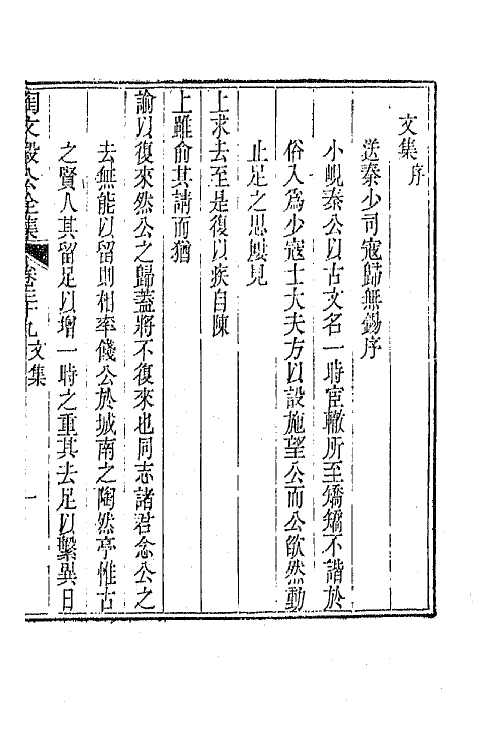 文集 序
送秦少司寇歸無錫序
小峴秦公以古文名一時宦轍所至矯矯不諧於
俗入爲少寇士大夫方以設施望公而公欿然動
止足之思屢見
上求去至是復以疾自陳
上雖俞其請而猶
諭以復來然公之歸蓋將不復來也同志諸君念公之
去無能以留則相率餞公於城南之陶然亭惟古
之賢人其留足以增一時之重其去足以繫異日
陶文毅公全集 卷三十九 文集 一